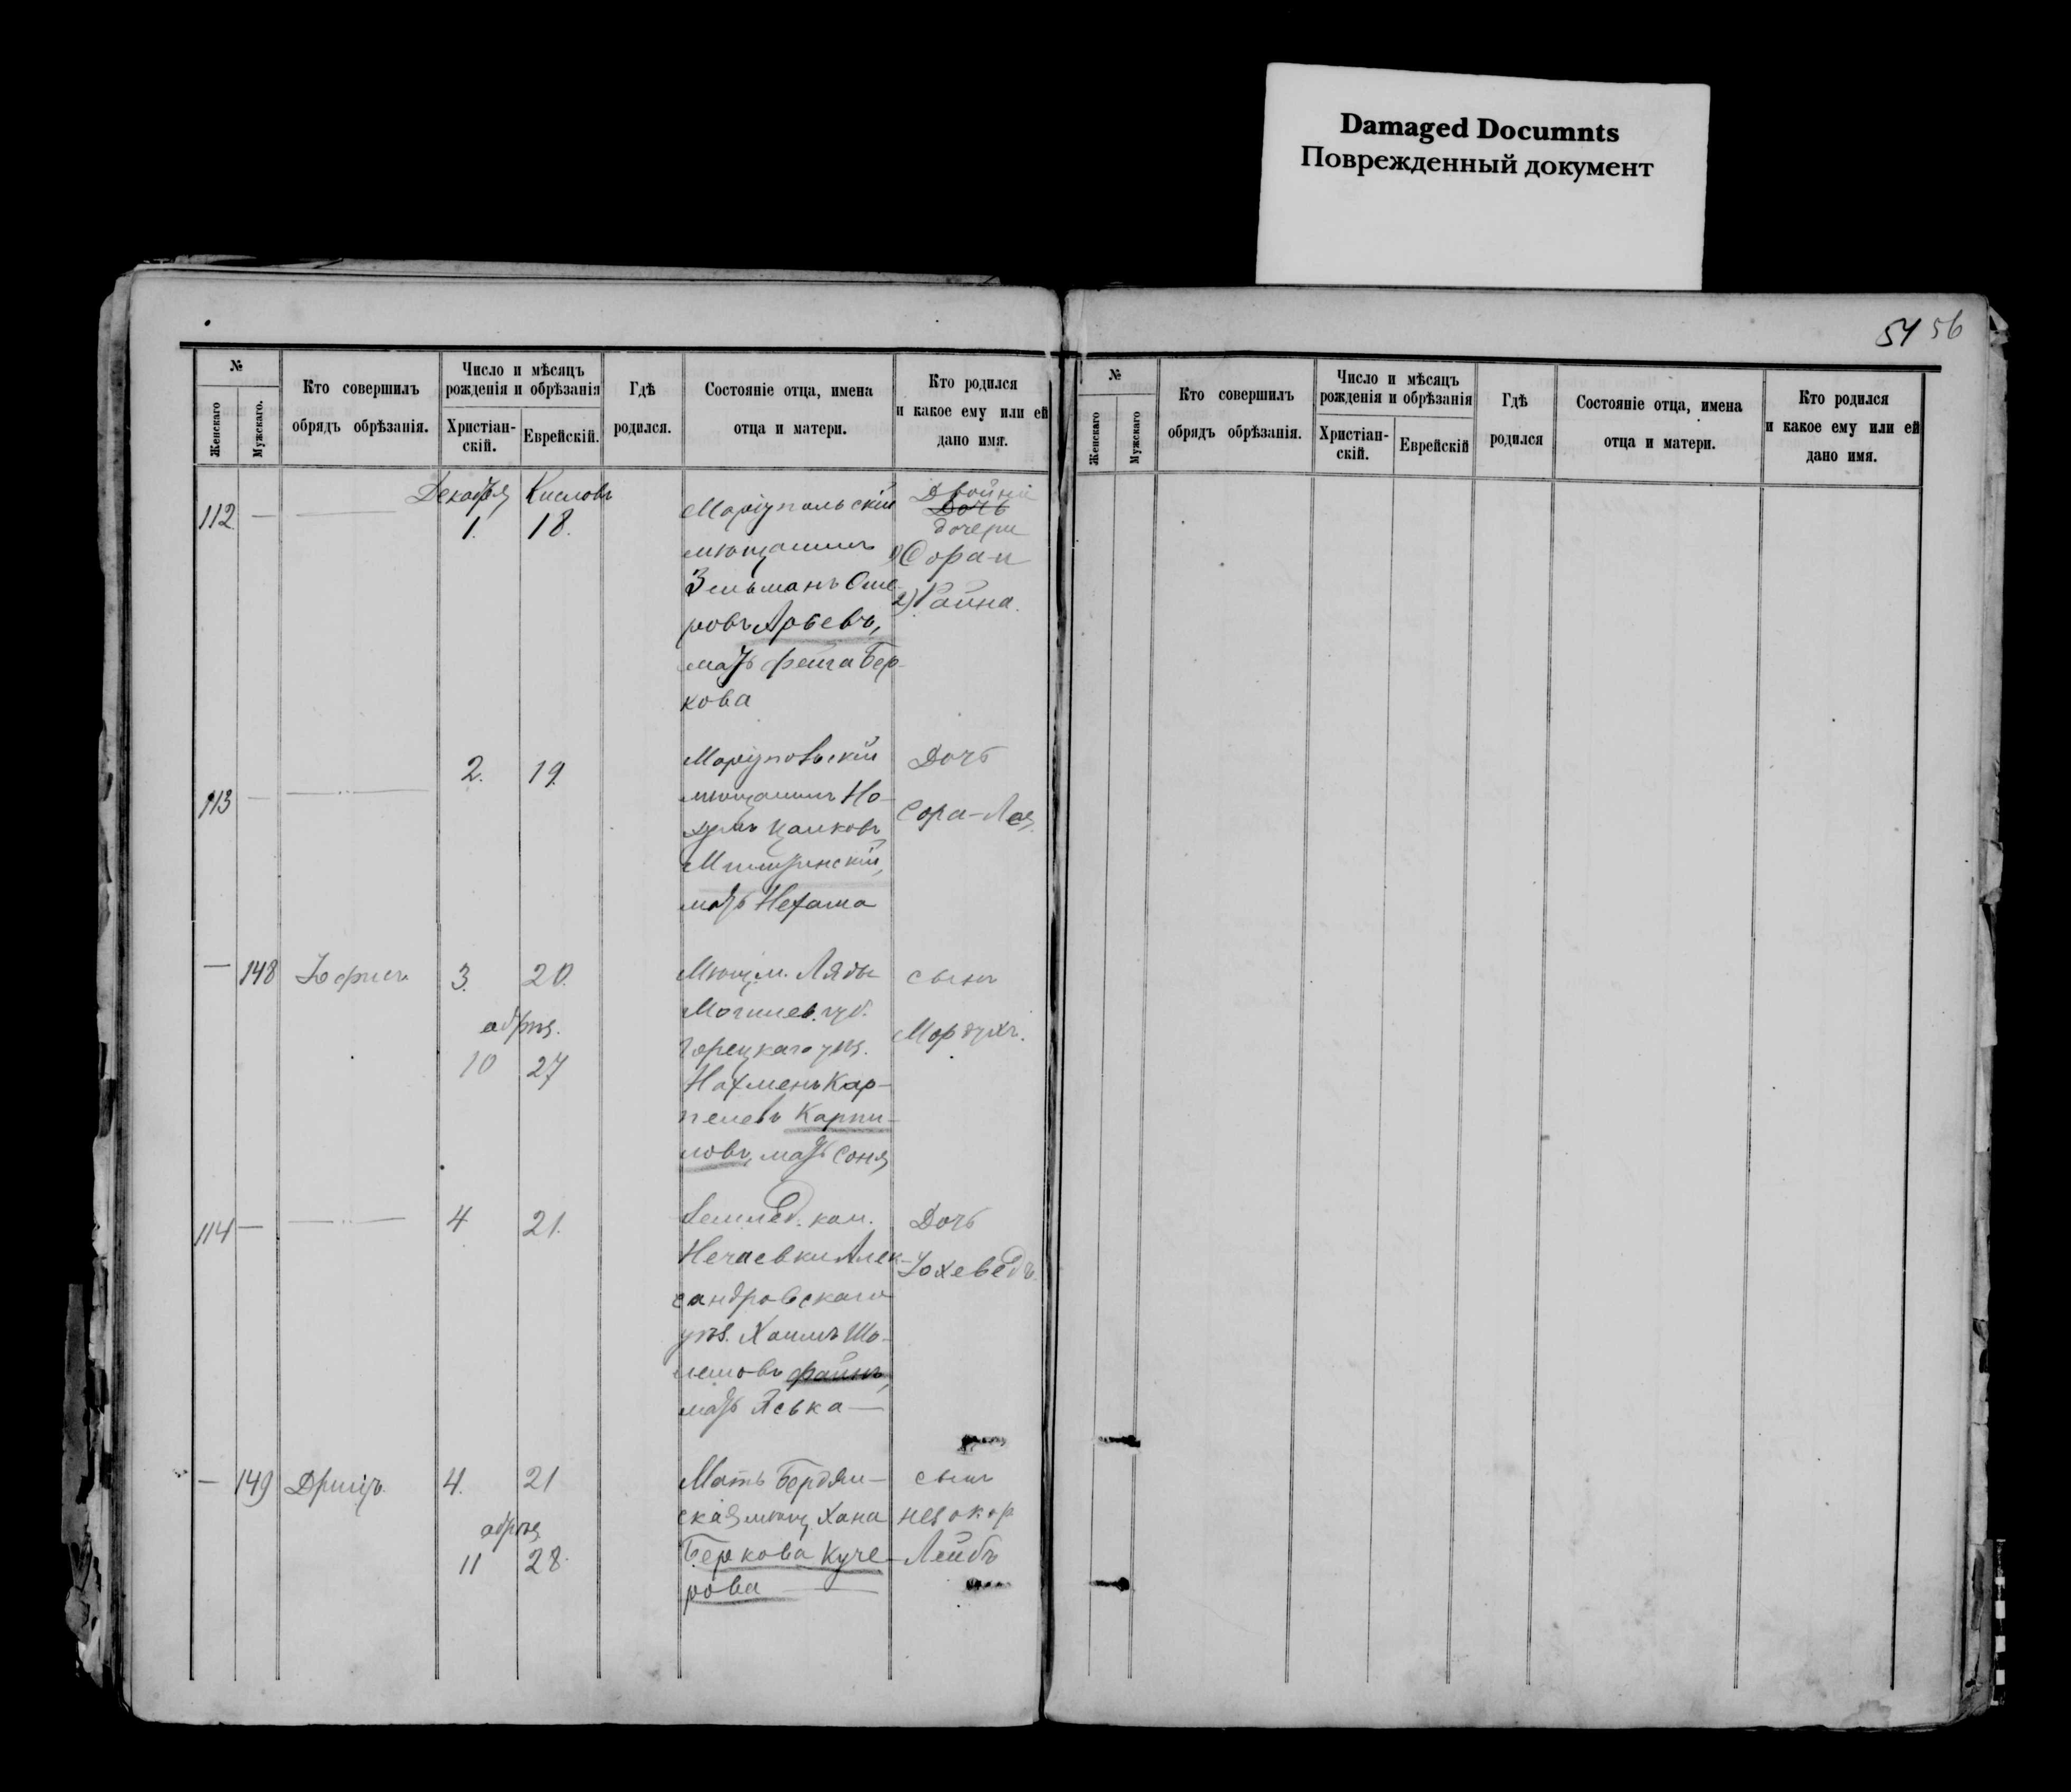 Damaged Documnts
Поврежденный документ
54 56
№
Женскаго
Мужскаго.
Кто совершилъ
обрядъ обрѣзанія.
Число и мѣсяцъ
рожденія и обрѣзанія
Христіан-
скій.
Еврейскій.
Гдѣ
родился.
Состояніе отца, имена
отца и матери.
Кто родился
и какое ему или ей
дано имя.
Декабря Кислова
112 — 1. 18.
Маріупольскій
мѣщанинъ
Зельманъ Оше-
ровъ Арьевъ,
мать Фейга Бер-
кова
Двойни
Дочь
дочери
1) Сора-и
2) Райна.
113 — 2. 19.
Маріупольскій
мѣщанинъ На-
хумъ Цалковъ
мать Нехама
Дочь
Сора-Лея.
— 148 3. 20.
обрѣз.
10 27
Мѣщ. м. Ляды
Могилев. губ.
Горецкаго уѣз.
Нахменъ Кар-
пелевъ Карпи-
ловъ, мать Соня
сынъ
Мордухъ.
114 — 4 21.
Землед. кол.
Нечаевки Алек-
сандровскаго
уѣз. Хаимъ Шо-
лемовъ Файнъ,
мать Яська —
Дочь
Іохеведъ.
— 149 4. 21
обрѣз.
11 28.
Мать Бердян-
ская мѣщ. Хана
Беркова Куче-
рова
сынъ
незакор
Лейбъ
№
Женскаго
Мужскаго
Кто совершилъ
обрядъ обрѣзанія.
Число и мѣсяцъ
рожденія и обрѣзанія
Христіан-
скій.
Еврейскій
Гдѣ
родился
Состояніе отца, имена
отца и матери.
Кто родился
и какое ему или ей
дано имя.